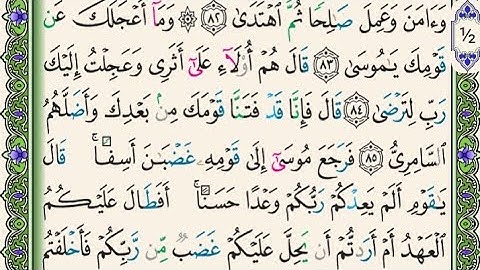 وَءَامَنَ وَعَمِلَ صَٰلِحًا ثُمَّ ٱهْتَدَىٰ ﴿٨٢﴾ ۞ وَمَآ أَعْجَلَكَ عَن
قَوْمِكَ يَٰمُوسَىٰ ﴿٨٣﴾ قَالَ هُمْ أُو۟لَآءِ عَلَىٰٓ أَثَرِى وَعَجِلْتُ إِلَيْكَ
رَبِّ لِتَرْضَىٰ ﴿٨٤﴾ قَالَ فَإِنَّا قَدْ فَتَنَّا قَوْمَكَ مِنۢ بَعْدِكَ وَأَضَلَّهُمُ
ٱلسَّامِرِىُّ ﴿٨٥﴾ فَرَجَعَ مُوسَىٰٓ إِلَىٰ قَوْمِهِۦ غَضْبَٰنَ أَسِفًا ۚ قَالَ
يَٰقَوْمِ أَلَمْ يَعِدْكُمْ رَبُّكُمْ وَعْدًا حَسَنًا ۚ أَفَطَالَ عَلَيْكُمُ
ٱلْعَهْدُ أَمْ أَرَدتُّمْ أَن يَحِلَّ عَلَيْكُمْ غَضَبٌ مِّن رَّبِّكُمْ فَأَخْلَفْتُم
1/2